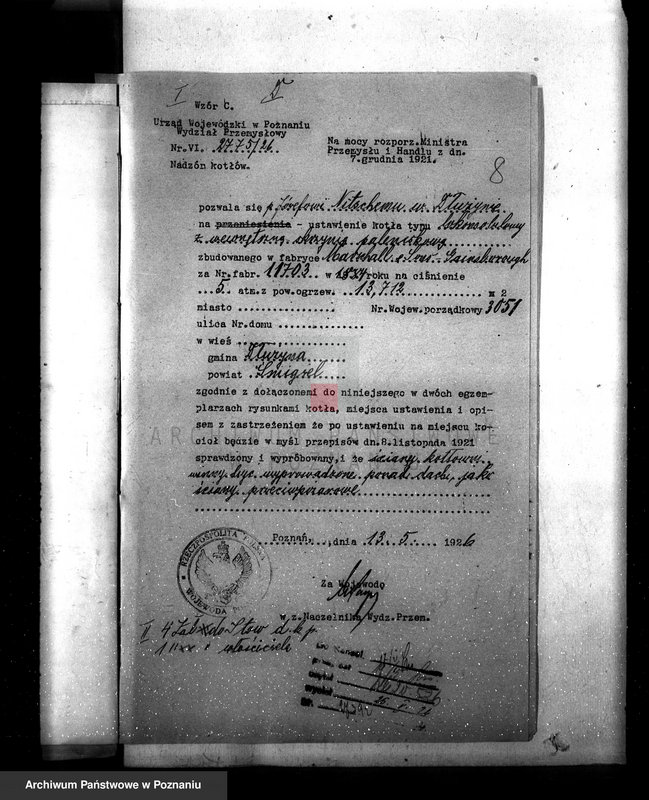 I
Wzór C.
Urząd Wojewódzki w Poznaniu
Wydział Przemysłowy
Nr.VI. 2775/26
Nadzón kotłów.
Na mocy rozporz.Ministra
Przemysłu i Handlu z dn.
7.grudnia 1921.
8
pozwala się p. Józefowi w Dłużynie
na przeniesienie - ustawienie kotła typu lokomobilowy
z wewnętrzną skrzynią paleniskową
zbudowanego w fabryce Marshall & Sons - Gainsborough
za Nr.fabr. 11703 w roku na ciśnienie
5. atm.z pow.ogrzew. 13,712 m 2
miasto Nr.Wojew.porządkowy 3051
ulica Nr.domu
w wieś
gmina Dłużyna
powiat Śmigiel
zgodnie z dołączonemi do niniejszego w dwóch egzem-
plarzach rysunkami kotła, miejsca ustawienia i opi-
sem z zastrzeżeniem że po ustawieniu na miejscu ko-
cioł będzie w myśl przepisów dn.8.listopada 1921
sprawdzony i wypróbowany, i że ściany kotłowni
muszą być wyprowadzone ponad dach, jako
ściany przeciwpożarowe
Poznań, dnia 13. 5. 1926
RZECZPOSPOLITA POLSKA
WOJEWODA
Za Wojewodę
w.z.Naczelnika Wydz.Przem.
II 4 Zał. do Stow d. k. p.
1 " " właściciela
Archiwum Państwowe w Poznaniu